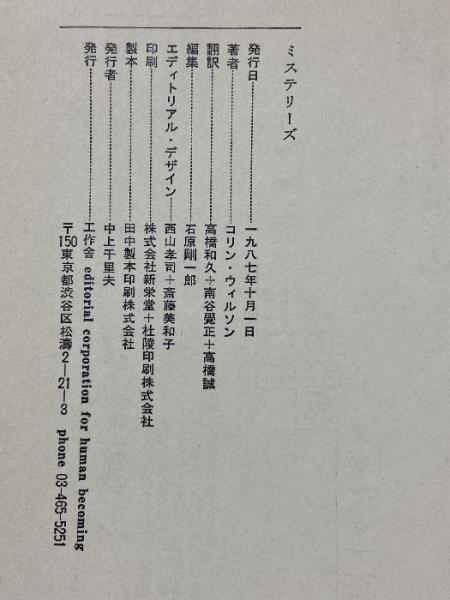 ミステリーズ
発行日…………一九八七年十月一日
著者…………コリン・ウィルソン
翻訳…………高橋和久＋南谷覺正＋高橋誠
編集…………石原剛一郎
エディトリアル・デザイン…………西山孝司＋斎藤美和子
印刷…………株式会社新栄堂＋杜陵印刷株式会社
製本…………田中製本印刷株式会社
発行者…………中上千里夫
発行…………工作舎 editorial corporation for human becoming
〒150 東京都渋谷区松濤2-21-3 phone 03-465-5251